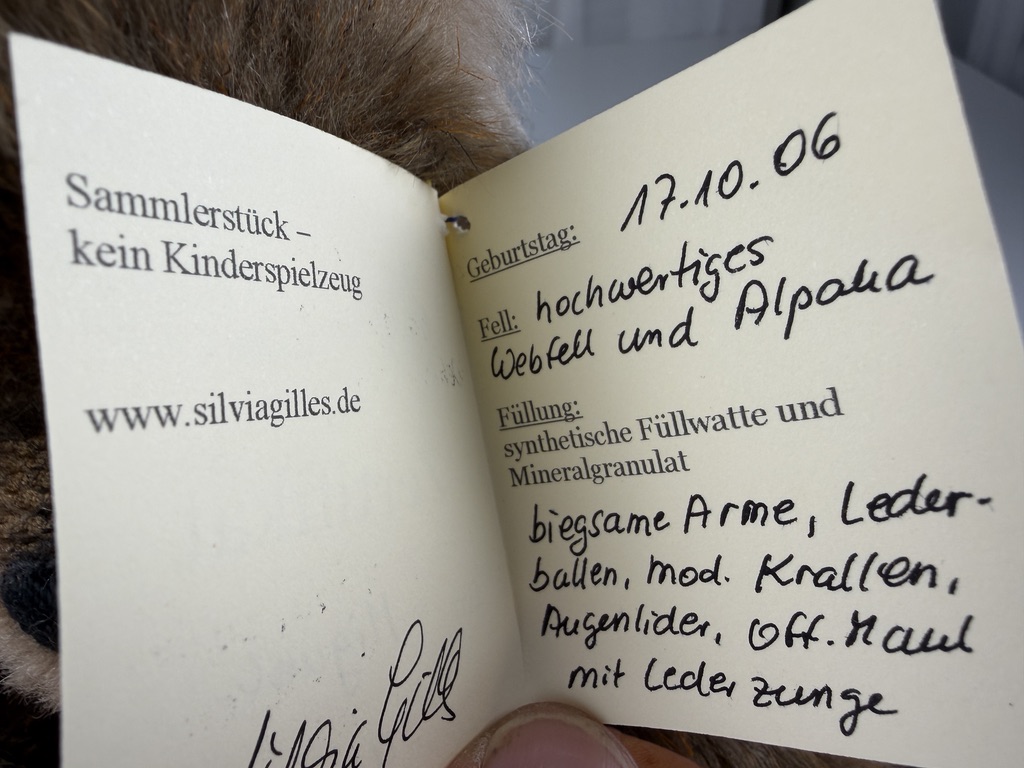 Sammlerstück –
kein Kinderspielzeug
www.silviagilles.de
Silvia Gilles
Geburtstag: 17.10.06
Fell: hochwertiges
Webfell und Alpaka
Füllung:
synthetische Füllwatte und
Mineralgranulat
biegsame Arme, Leder-
ballen, mod. Krallen,
Augenlider, off. Maul
mit Lederzunge